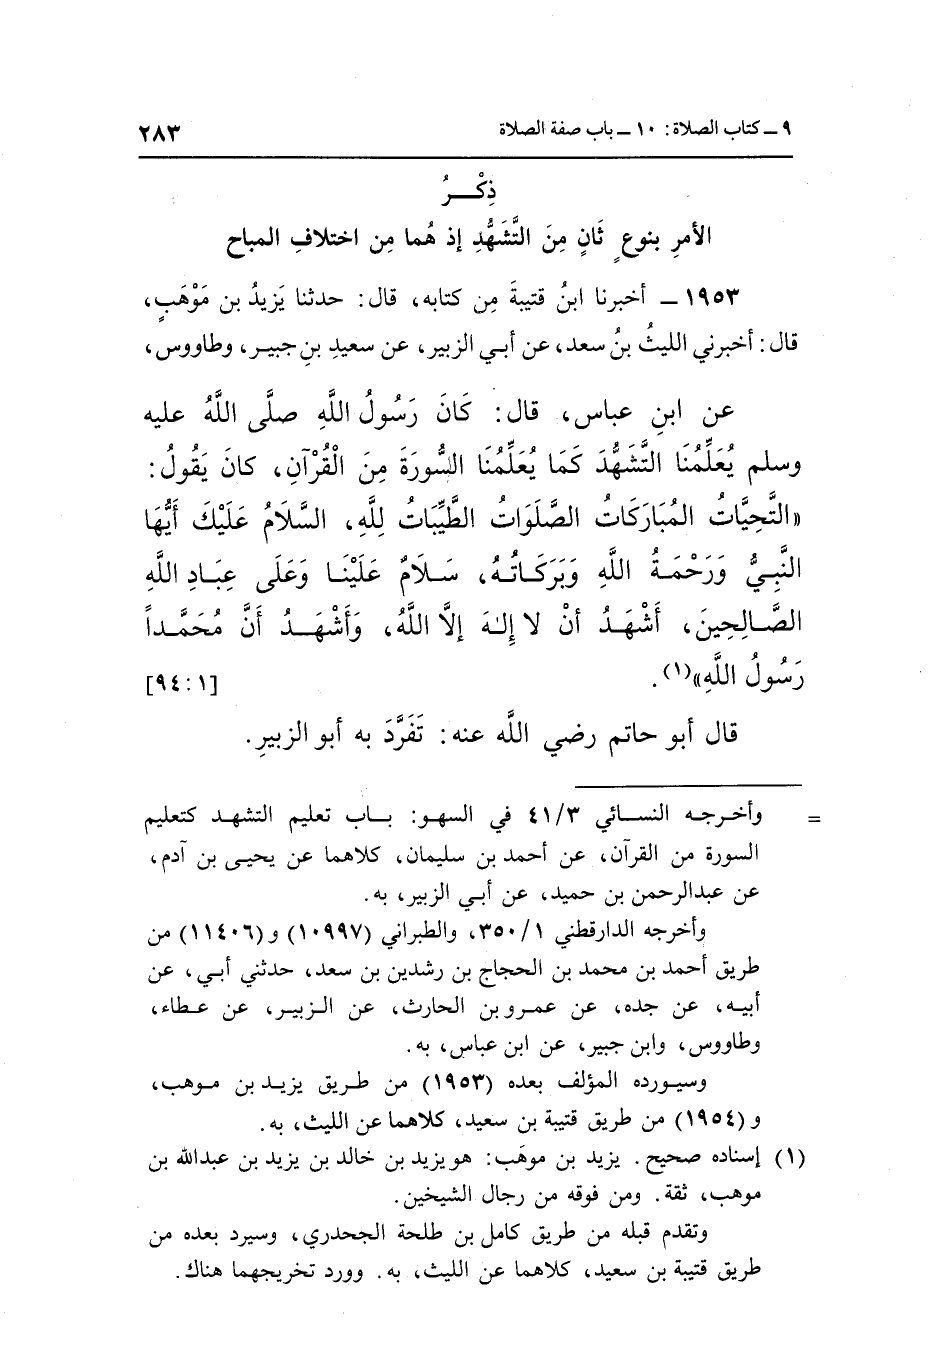 ٩ ــ كتاب الصلاة: ١٠ ــ باب صفة الصلاة ٢٨٣
ذِكْــرُ
الأمرِ بنوعٍ ثَانٍ مِنَ التَّشَهُّدِ إذ هُما مِن اختلافِ المباح
١٩٥٣ ــ أخبرنا ابنُ قتيبةَ مِن كتابه، قال: حدثنا يَزِيدُ بن مَوْهَبٍ،
قال: أخبرني الليثُ بنُ سعد، عن أبي الزبير، عن سعيدِ بنِ جبير، وطاووس،
عن ابنِ عباس، قال: كَانَ رَسُولُ اللَّهِ صلَّى اللَّهُ عليه
وسلم يُعَلِّمُنَا التَّشَهُّدَ كَمَا يُعَلِّمُنَا السُّورَةَ مِنَ الْقُرْآنِ، كانَ يَقُولُ:
«التَّحِيَّاتُ المُبَارَكَاتُ الصَّلَوَاتُ الطَّيِّبَاتُ لِلَّهِ، السَّلَامُ عَلَيْكَ أَيُّهَا
النَّبِيُّ وَرَحْمَةُ اللَّهِ وَبَرَكَـاتُـهُ، سَـلَامٌ عَلَيْنَـا وَعَلَى عِبَـادِ اللَّهِ
الصَّـالِحِينَ، أَشْهَـدُ أنْ لا إِلـٰهَ إلَّا اللَّهُ، وَأَشْهَـدُ أَنَّ مُحَمَّـداً
رَسُولُ اللَّهِ»(١). [٩٤:١]
قال أبو حاتم رضي اللَّه عنه: تَفَرَّدَ به أبو الزبيرِ.
= وأخـرجـه النسـائي ٤١/٣ في السهـو: بــاب تعليم التشهـد كتعليم
السورة من القرآن، عن أحمد بن سليمان، كلاهما عن يحيى بن آدم،
عن عبدالرحمن بن حميد، عن أبي الزبير، به.
وأخرجه الدارقطني ٣٥٠/١، والطبراني (١٠٩٩٧) و(١١٤٠٦) من
طريق أحمد بن محمد بن الحجاج بن رشدين بن سعد، حدثني أبي، عن
أبيـه، عن جده، عن عمـرو بن الحارث، عن الـزبيـر، عن عـطاء،
وطاووس، وابن جبير، عن ابن عباس، به.
وسيـورده المؤلف بعده (١٩٥٣) من طـريق يزيـد بن مـوهب،
و (١٩٥٤) من طريق قتيبة بن سعيد، كلاهما عن الليث، به.
(١) إسناده صحيح. يزيد بن موهَب: هو يزيد بن خالد بن يزيد بن عبدالله بن
موهب، ثقة. ومن فوقه من رجال الشيخين.
وتقدم قبله من طريق كامل بن طلحة الجحدري، وسيرد بعده من
طريق قتيبة بن سعيد، كلاهما عن الليث، به. وورد تخريجهما هناك.